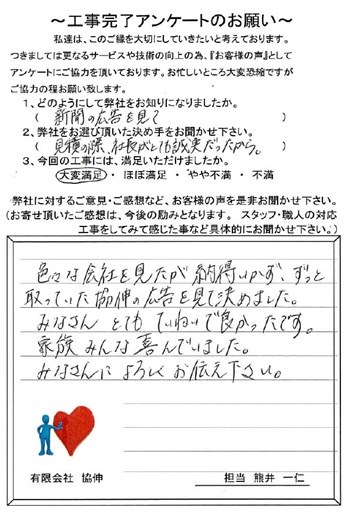 ～工事完了アンケートのお願い～
私達は、このご縁を大切にしていきたいと考えております。
つきましては更なるサービスや技術の向上の為、『お客様の声』として
アンケートにご協力を頂いております。お忙しいところ大変恐縮ですが
ご協力の程お願い致します。
1、どのようにして弊社をお知りになりましたか。
( 新聞の広告を見て )
2、弊社をお選び頂いた決め手をお聞かせ下さい。
( 見積の際、社長がとても誠実だったから。 )
3、今回の工事には、満足いただけましたか。
大変満足 ・ ほぼ満足 ・ やや不満 ・ 不満
弊社に対するご意見・ご感想など、お客様の声を是非お聞かせ下さい。
(お寄せ頂いたご感想は、今後の励みとなります。 スタッフ・職人の対応
工事をしてみて感じた事など具体的にお聞かせ下さい。)
色々な会社を見たが納得いかず、ずっと
取っていた協伸の広告を見て決めました。
みなさん とても ていねいで良かったです。
家族 みんな 喜んでいました。
みなさんに よろしく お伝え下さい。
有限会社 協伸
担当 熊井 一仁